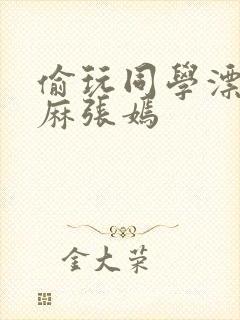 偷玩同學漂
麻張媽
金大荣